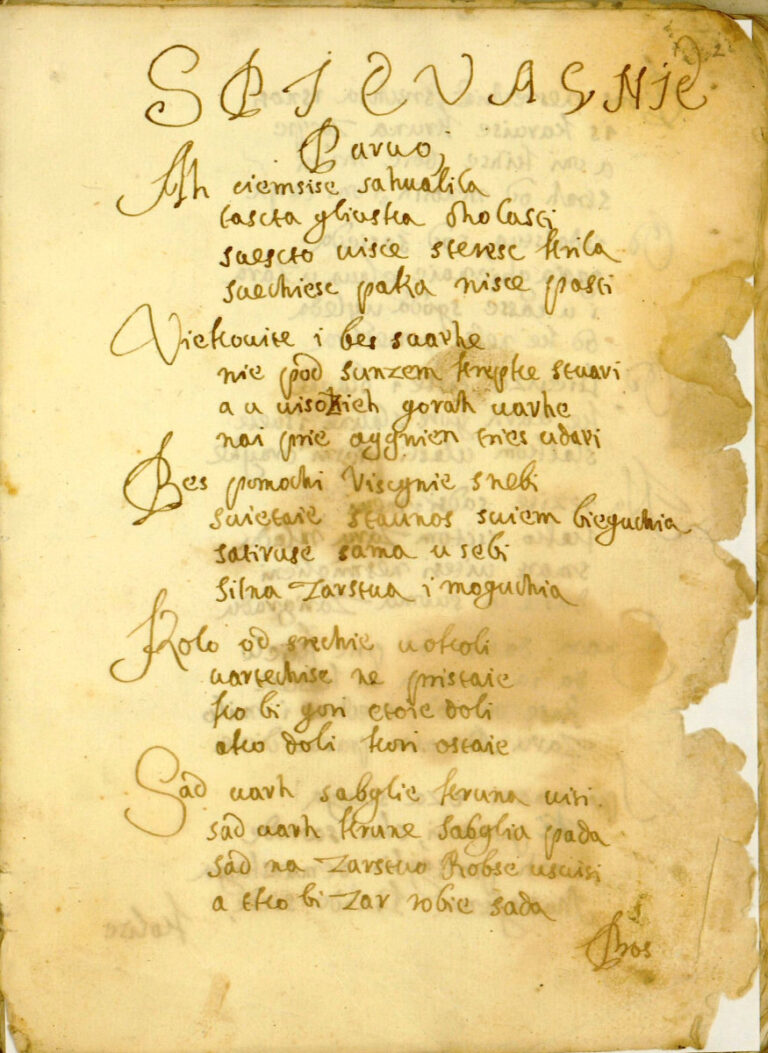 SPIEVAGNIE
Paruo
Ah ciemsise sahualila
tascta gliuska oholasti
suescto uisce steresc krila
suechiesc paka nisce pasti
Viekouite i bes suarhe
nie pod sunzem krepke stuari
a u uisokieh gorah uarhe
nai prie oggnien tries udari
Bes pomochi Viscgnie s nebi
suietaie staunos suiem bieguchia
satiruse sama u sebi
silna Zarstua i moguchia
Kolo od srechie uokoli
uartechise ne pristaie
tko bi gori etoie doli
atko doli kori ostaie
Sad uarh sabglie kruna uisi
sad uarh krune sabglia pada
sad na Zarstuo Robse usuisi
a tko bi Zar robie sada
Pros